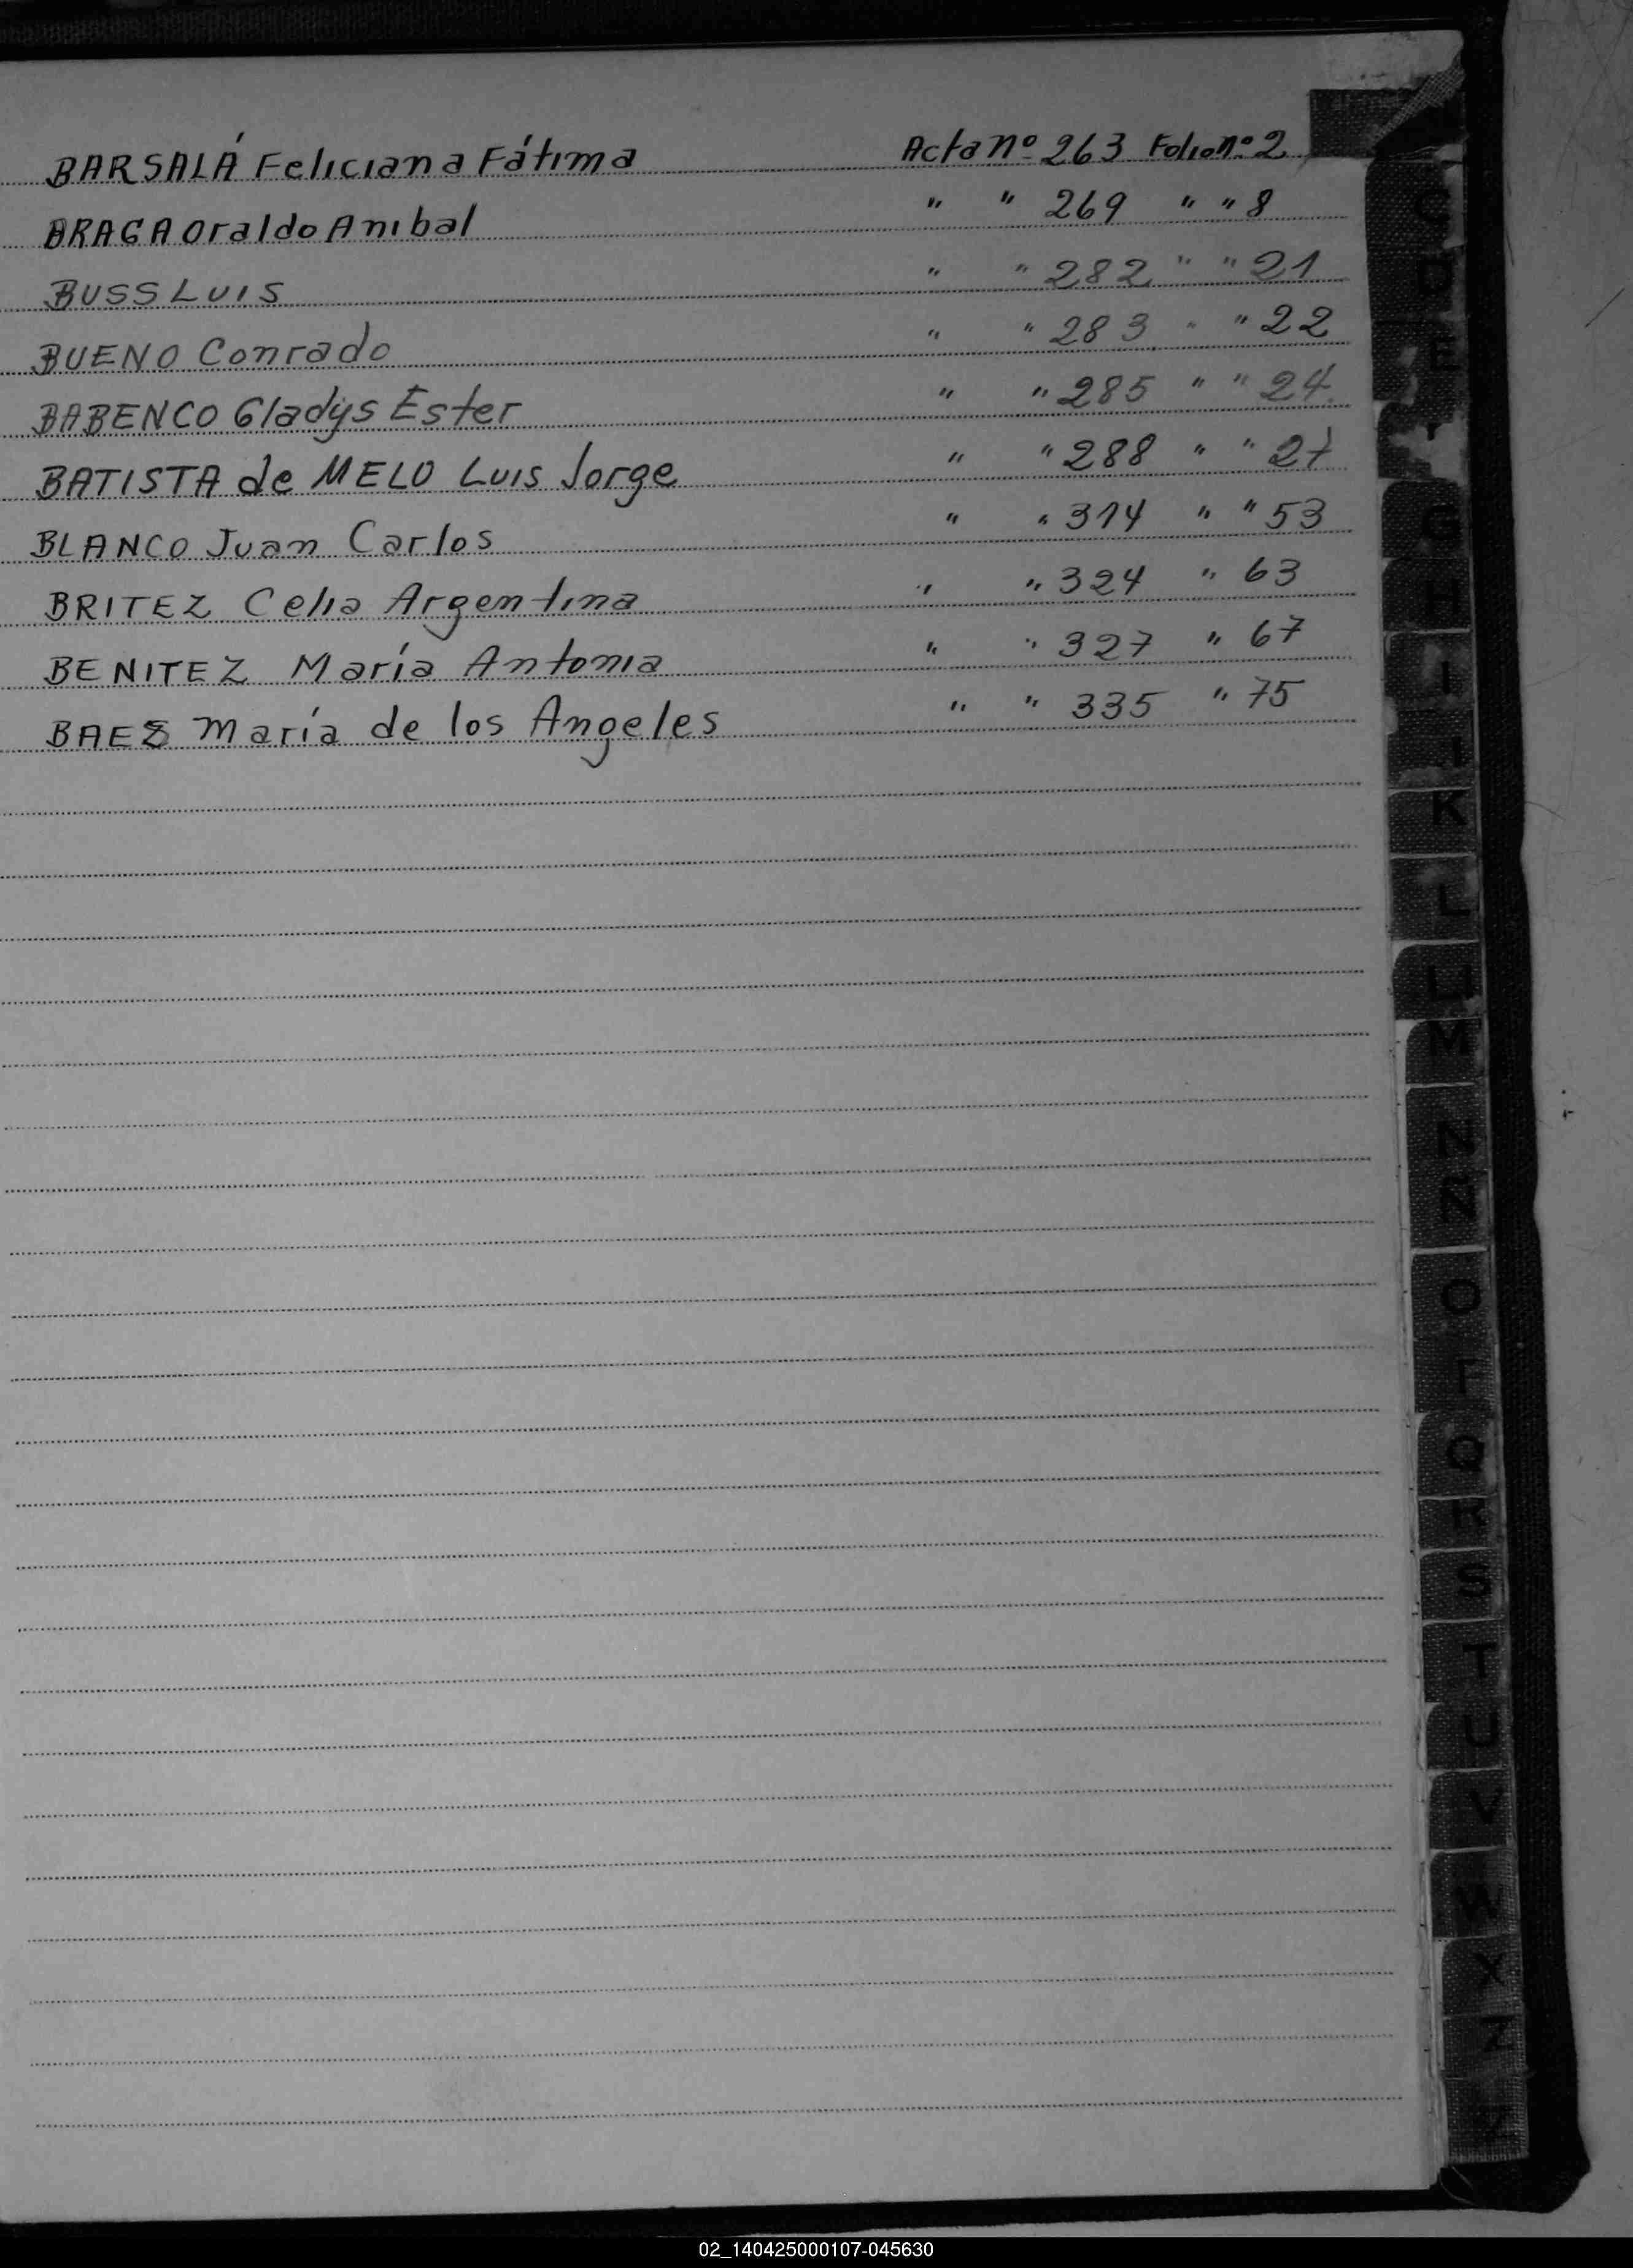 BARSALÁ Feliciana Fátima Acta nº 263 Folio nº 2
BRAGA Oraldo Anibal " " 269 " " 8
BUSS LUIS " " 282 " " 21
BUENO Conrado " " 283 " " 22
BABENCO Gladys Ester " " 285 " " 24
BATISTA de MELO Luis Jorge " " 288 " " 27
BLANCO Juan Carlos " " 314 " " 53
BRITEZ Celia Argentina " " 324 " 63
BENITEZ María Antonia " " 327 " 67
BAEZ María de los Angeles " " 335 " 75
C
D
E
G
H
I
K
L
M
N
Ñ
O
Q
R
S
T
U
V
W
X
Z
02_140425000107-045630